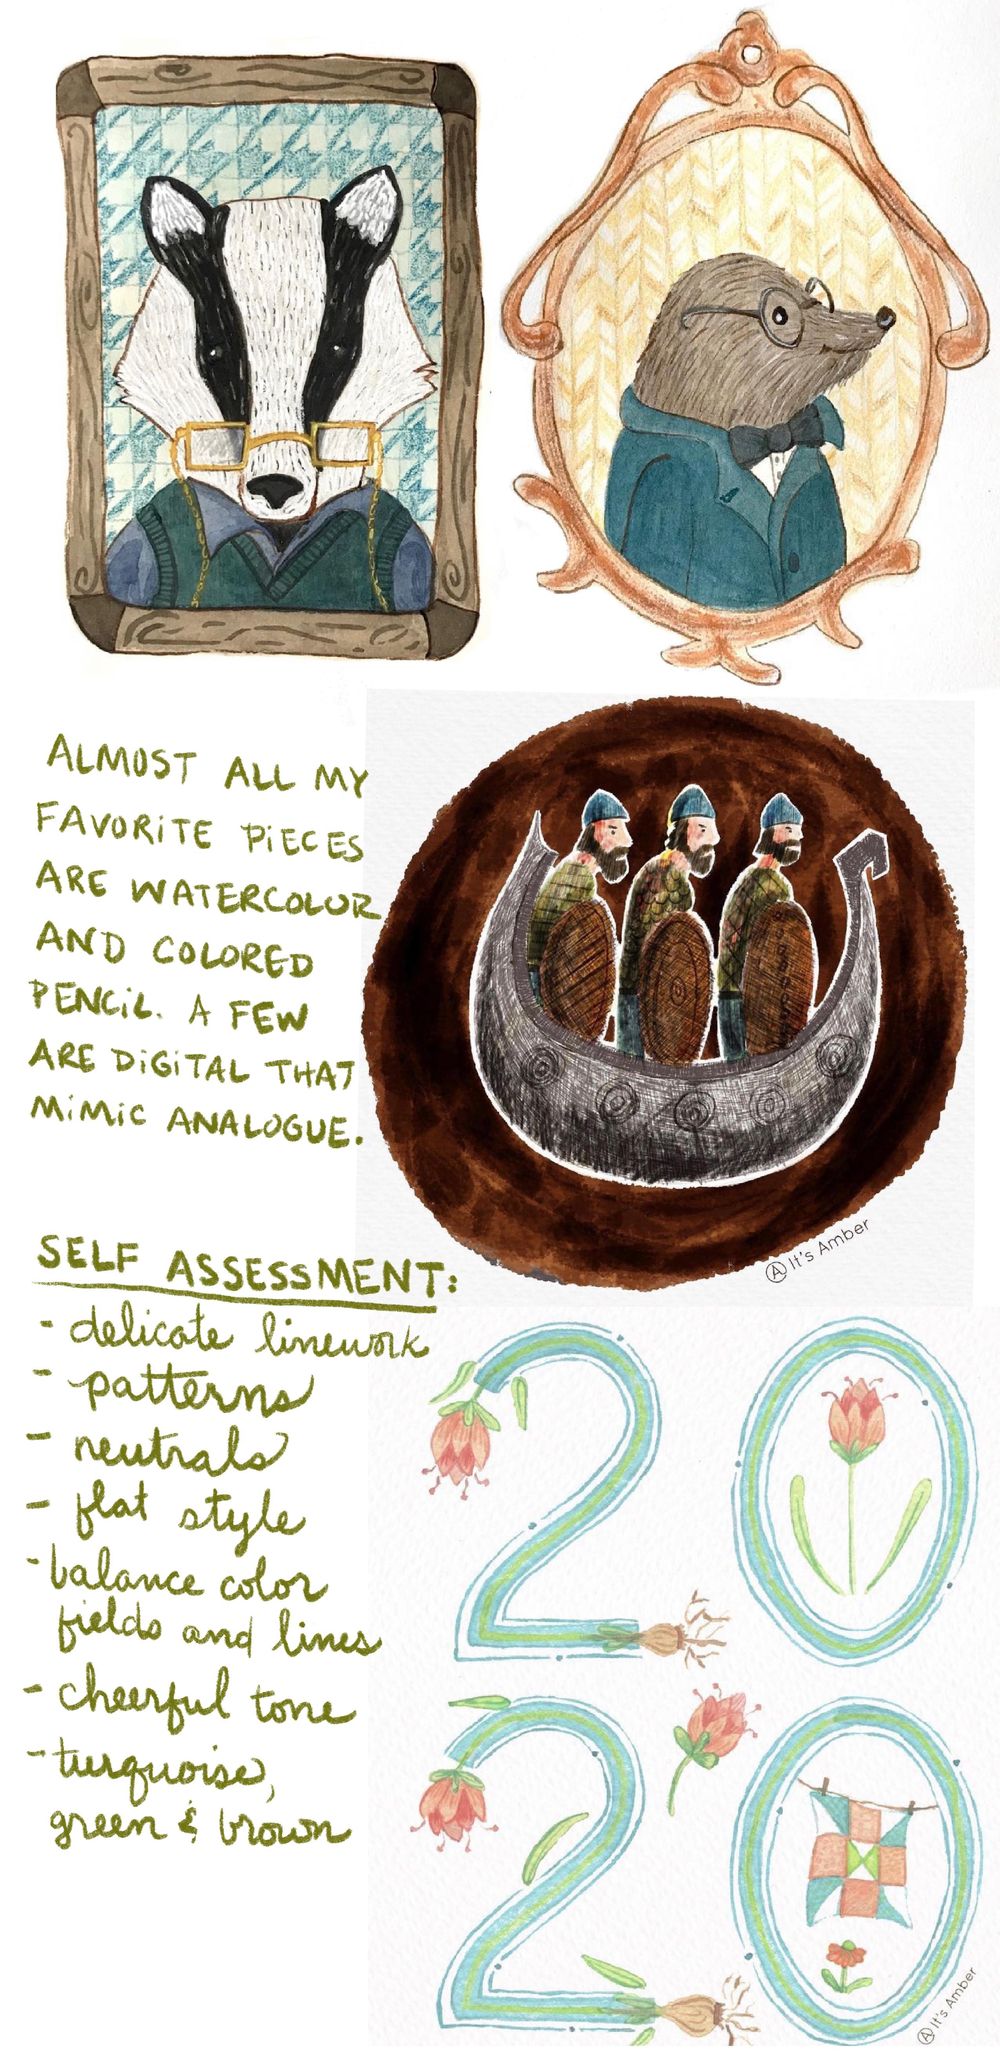 ALMOST ALL MY
FAVORITE PIECES
ARE WATERCOLOR
AND COLORED
PENCIL. A FEW
ARE DIGITAL THAT
MIMIC ANALOGUE.
Ⓐ It's Amber
SELF ASSESSMENT:
- delicate linework
- patterns
- neutrals
- flat style
- balance color
fields and lines
- cheerful tone
- turquoise,
green & brown
20
20
Ⓐ It's Amber